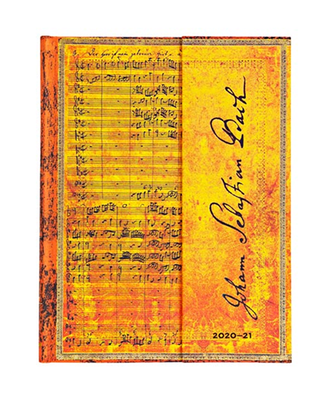 Johann Sebastian Bach
2020–21